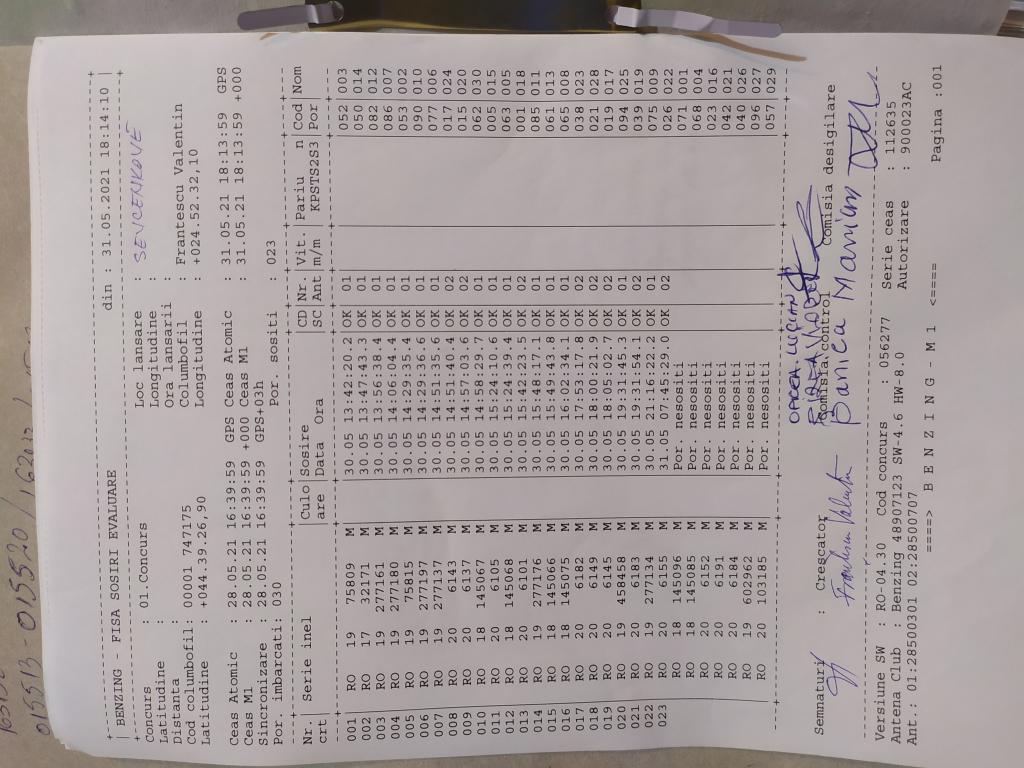 din : 31.05.2021 18:14:10
BENZING - FISA SOSIRI EVALUARE
Concurs : 01.Concurs Loc lansare : SEVCENKOVE
Latitudine : Longitudine :
Distanta : Ora lansarii :
Cod columbofil: 00001 747175 Columbofil : Frantescu Valentin
Latitudine : +044.39.26,90 Longitudine : +024.52.32,10
Ceas Atomic : 28.05.21 16:39:59 GPS Ceas Atomic : 31.05.21 18:13:59 GPS
Ceas M1 : 28.05.21 16:39:59 +000 Ceas M1 : 31.05.21 18:13:59 +000
Sincronizare : 28.05.21 16:39:59 GPS+03h
Por. imbarcati: 030 Por. sositi : 023
Nr. | Serie inel |Culo|Sosire |CD|Nr |Vit.|Pariu n |Cod|Nom
crt | |are |Data Ora |SC|Ant|m/m |KPSTS2S3|Por|
001 | RO 19 75809 M | |30.05 13:42:20.2|OK| 01| | |052|003
002 | RO 17 32171 M | |30.05 13:47:43.3|OK| 01| | |050|014
003 | RO 19 277161 M | |30.05 13:56:38.4|OK| 01| | |082|012
004 | RO 19 277180 M | |30.05 14:06:04.4|OK| 01| | |086|007
005 | RO 19 75815 M | |30.05 14:29:35.4|OK| 01| | |053|002
006 | RO 19 277197 M | |30.05 14:29:36.6|OK| 01| | |090|010
007 | RO 19 277137 M | |30.05 14:51:35.6|OK| 01| | |077|006
008 | RO 20 6143 M | |30.05 14:51:40.4|OK| 02| | |017|024
009 | RO 20 6137 M | |30.05 14:57:03.6|OK| 02| | |015|020
010 | RO 18 145067 M | |30.05 14:58:29.7|OK| 01| | |062|030
011 | RO 20 6105 M | |30.05 15:24:10.6|OK| 01| | |005|015
012 | RO 18 145068 M | |30.05 15:24:39.4|OK| 01| | |063|005
013 | RO 20 6101 M | |30.05 15:42:23.5|OK| 02| | |001|018
014 | RO 19 277176 M | |30.05 15:48:17.1|OK| 01| | |085|011
015 | RO 18 145066 M | |30.05 15:49:43.8|OK| 01| | |061|013
016 | RO 18 145075 M | |30.05 16:02:34.1|OK| 01| | |065|008
017 | RO 20 6182 M | |30.05 17:53:17.8|OK| 02| | |038|023
018 | RO 20 6149 M | |30.05 18:00:21.9|OK| 02| | |021|028
019 | RO 20 6145 M | |30.05 18:05:02.7|OK| 02| | |019|017
020 | RO 19 458458 M | |30.05 19:31:45.3|OK| 01| | |094|025
021 | RO 20 6183 M | |30.05 19:31:54.1|OK| 02| | |039|019
022 | RO 19 277134 M | |30.05 21:16:22.2|OK| 01| | |075|009
023 | RO 20 6155 M | |31.05 07:45:29.0|OK| 02| | |026|022
RO 18 145096 M | |Por. nesositi |071|001
RO 18 145085 M | |Por. nesositi |068|004
RO 20 6152 M | |Por. nesositi |023|016
RO 20 6191 M | |Por. nesositi |042|021
RO 20 6184 M | |Por. nesositi |040|026
RO 19 602962 M | |Por. nesositi |096|027
RO 20 103185 M | |Por. nesositi |057|029
Semnaturi : Crescator Comisia control Comisia desigilare
Frantescu Valentin Banica Marian
Versiune SW : RO-04.30 Cod concurs : 056277 Serie ceas : 112635
Antena Club : Benzing 48907123 SW-4.6 HW-8.0 Autorizare : 900023AC
Ant.: 01:28500301 02:28500707
====> B E N Z I N G - M 1 <==== Pagina :001